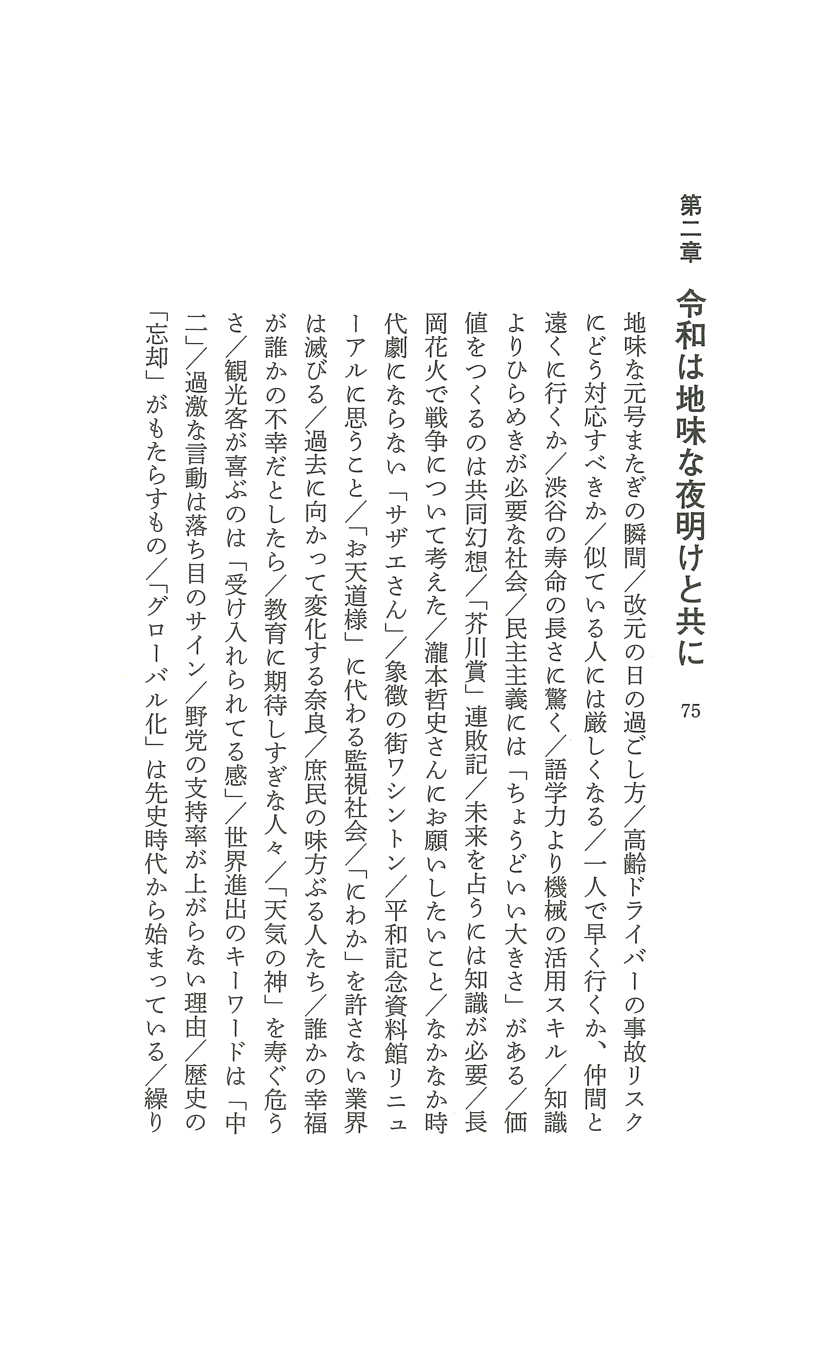 第二章 令和は地味な夜明けと共に 75
地味な元号またぎの瞬間／改元の日の過ごし方／高齢ドライバーの事故リスク
にどう対応すべきか／似ている人には厳しくなる／一人で早く行くか、仲間と
遠くに行くか／渋谷の寿命の長さに驚く／語学力より機械の活用スキル／知識
よりひらめきが必要な社会／民主主義には「ちょうどいい大きさ」がある／価
値をつくるのは共同幻想／「芥川賞」連敗記／未来を占うには知識が必要／長
岡花火で戦争について考えた／瀧本哲史さんにお願いしたいこと／なかなか時
代劇にならない「サザエさん」／象徴の街ワシントン／平和記念資料館リニュ
ーアルに思うこと／「お天道様」に代わる監視社会／「にわか」を許さない業界
は滅びる／過去に向かって変化する奈良／庶民の味方ぶる人たち／誰かの幸福
が誰かの不幸だとしたら／教育に期待しすぎな人々／「天気の神」を寿ぐ危う
さ／観光客が喜ぶのは「受け入れられてる感」／世界進出のキーワードは「中
二」／過激な言動は落ち目のサイン／野党の支持率が上がらない理由／歴史の
「忘却」がもたらすもの／「グローバル化」は先史時代から始まっている／繰り